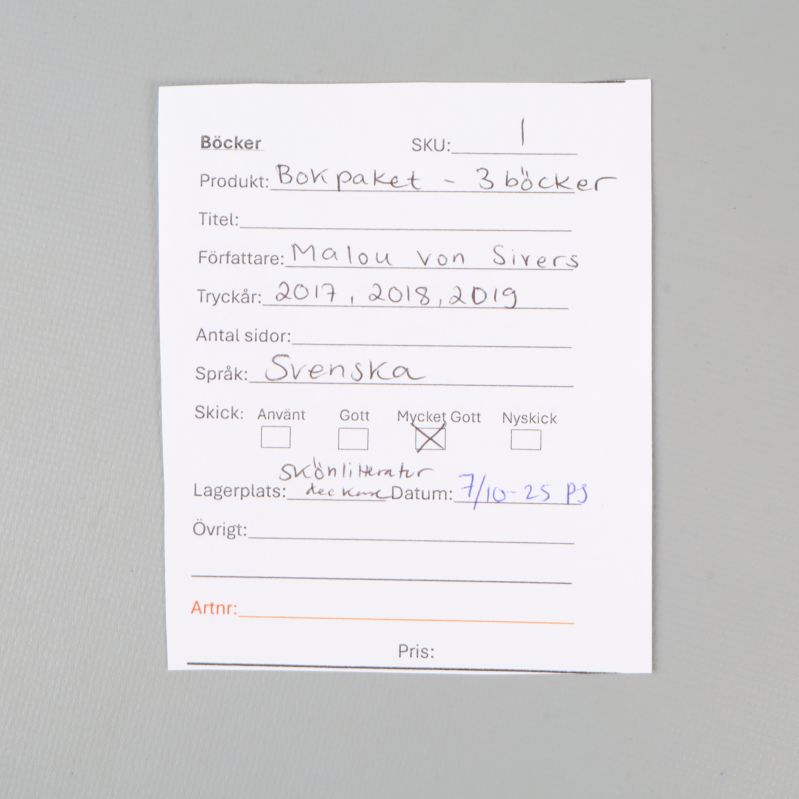 Böcker SKU: 1
Produkt: Bokpaket - 3 böcker
Titel:
Författare: Malou von Sivers
Tryckår: 2017, 2018, 2019
Antal sidor:
Språk: Svenska
Skick: Använt Gott Mycket Gott Nyskick
Skönlitteratur
Lagerplats: deckare Datum: 7/10-25 PS
Övrigt:
Artnr:
Pris: